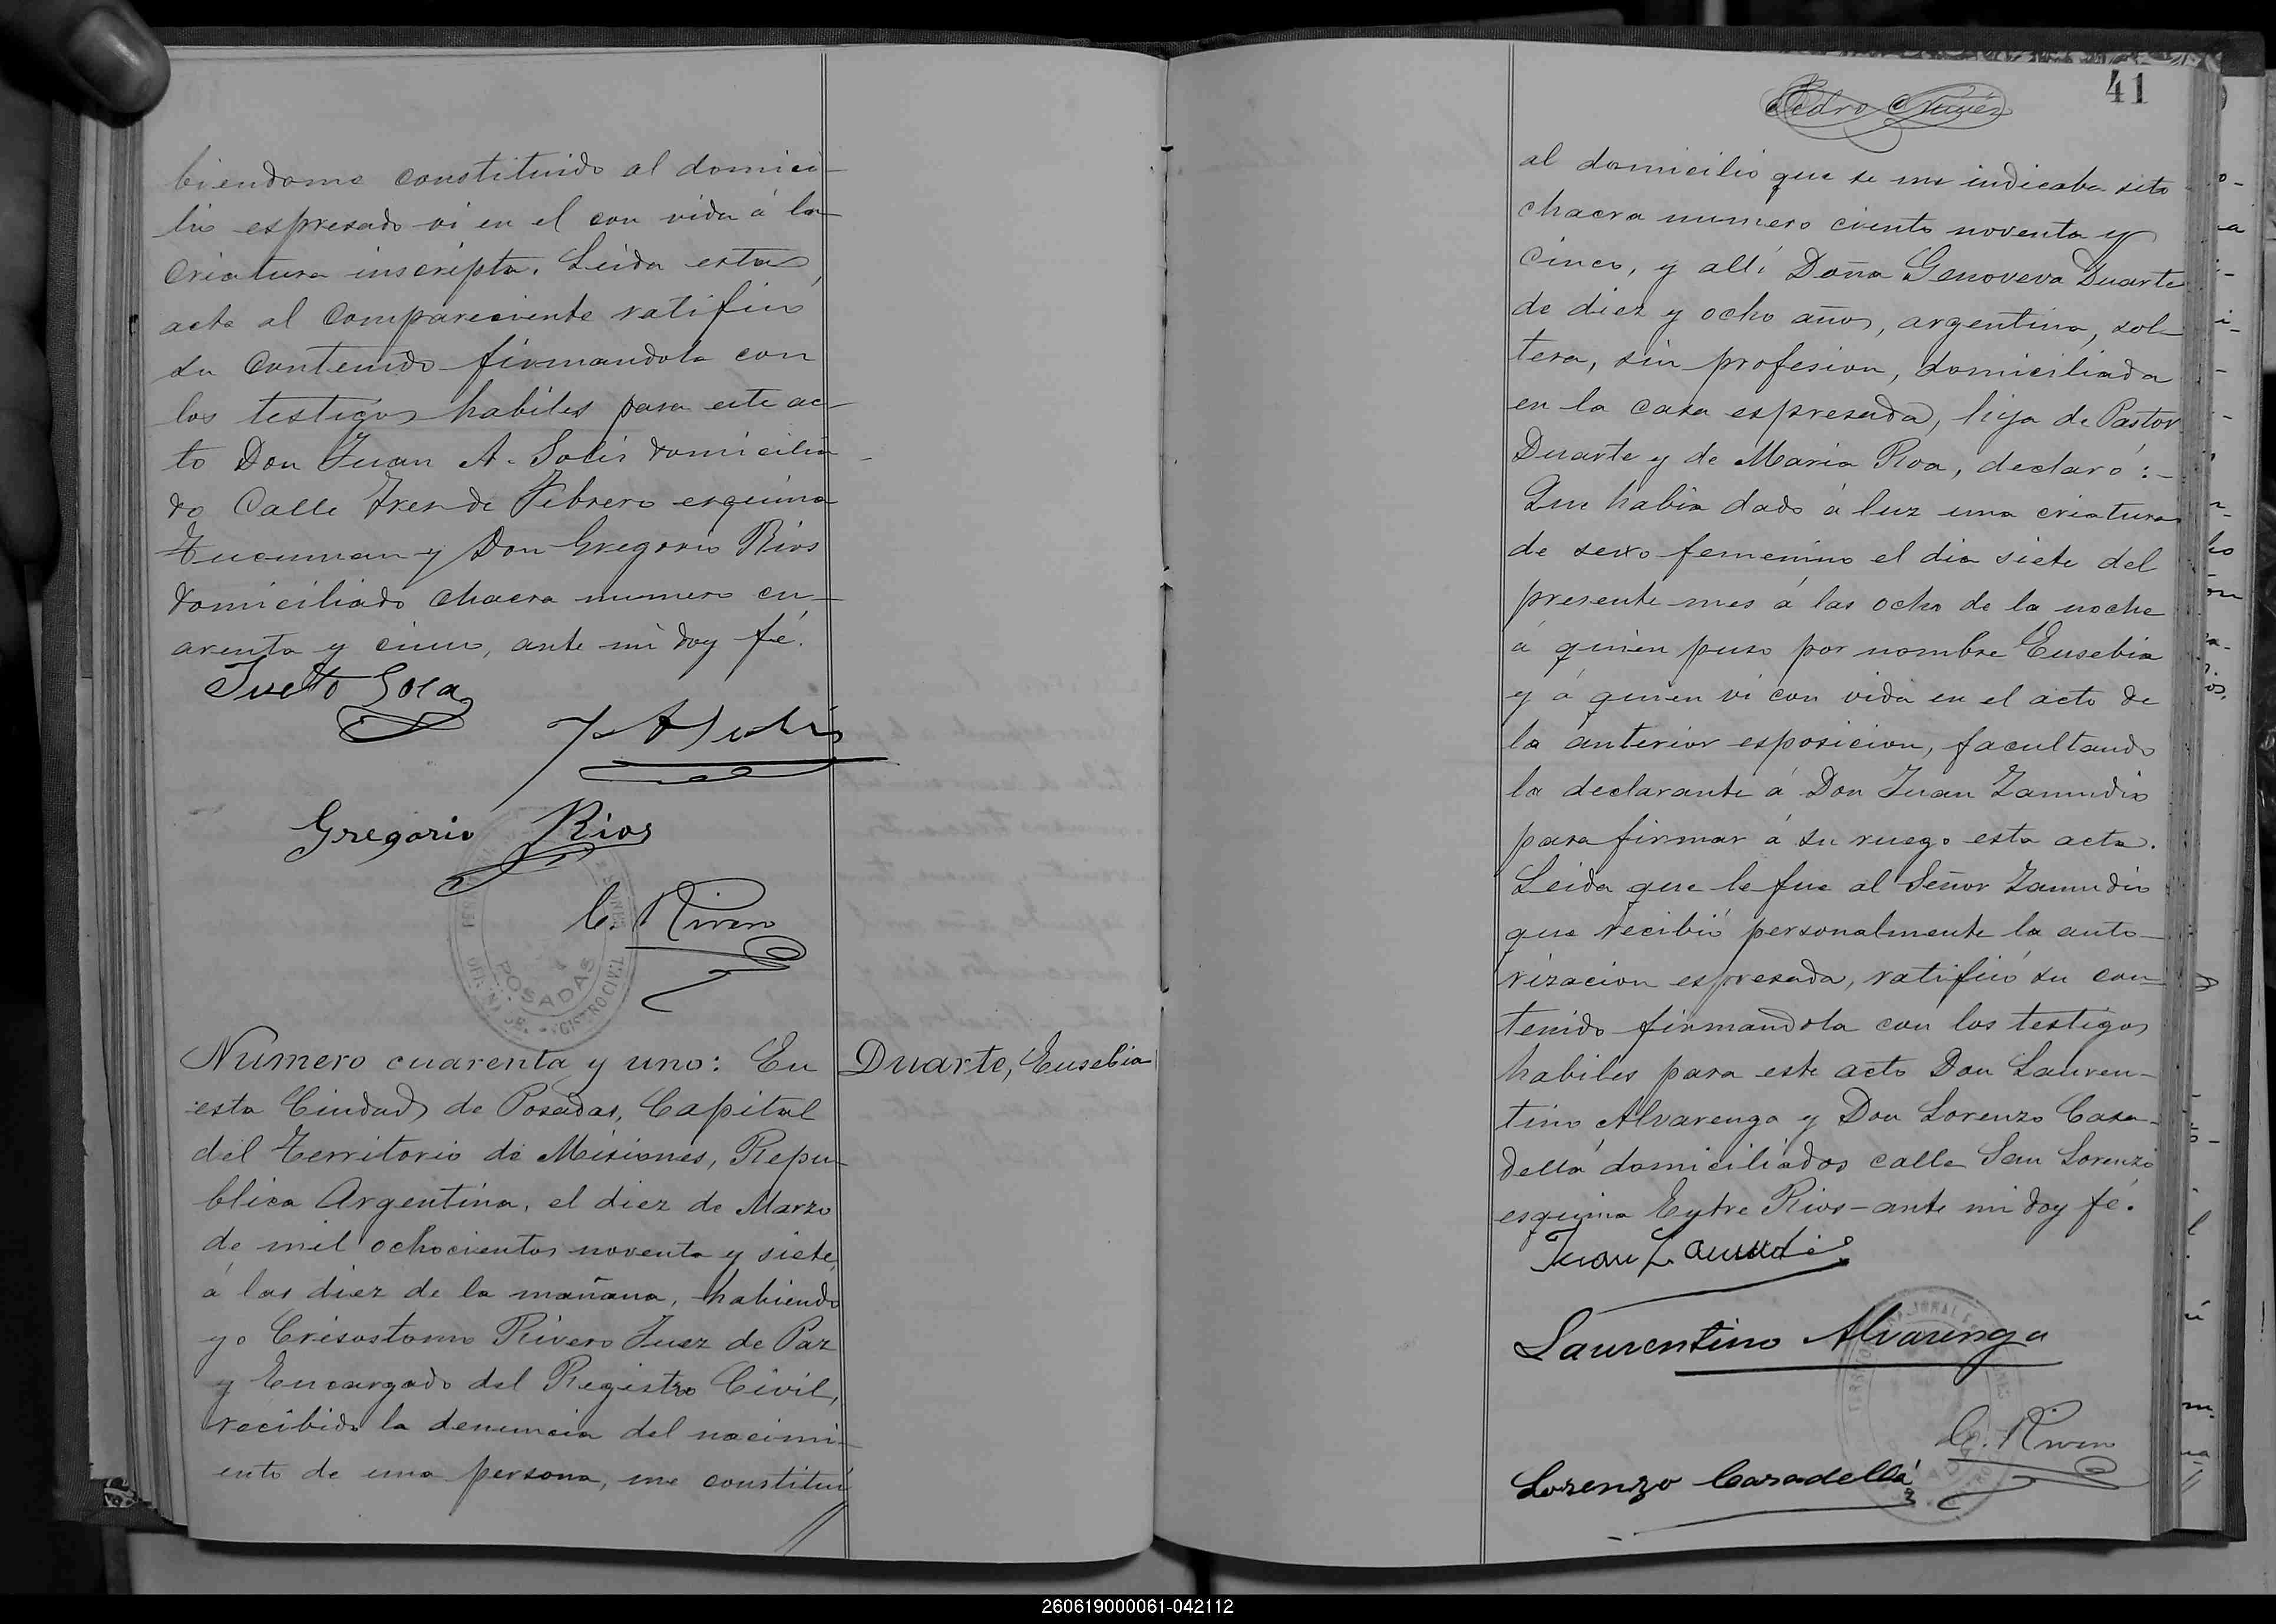 biendome constituido al domici-
lio espresado vi en el con vida á la
criatura inscripta. Leida esta
acta al compareciente ratificó
su contenido firmandola con
los testigos habiles para este ac-
to Don Juan A. Solis domicilia-
do Calle Tres de Febrero esquina
Tucuman y Don Gregorio Rios
domiciliado chacra numero cu-
arenta y cinco, ante mi doy fé.
J A Solis
Gregorio Rios
C. Rivero
POSADAS
Numero cuarenta y uno: En
Duarte, Eusebia
esta Ciudad de Posadas, Capital
del Territorio de Misiones, Repu-
blica Argentina, el diez de Marzo
de mil ochocientos noventa y siete,
á las diez de la mañana, habiendo
yo Crisostomo Rivero Juez de Paz
y Encargado del Registro Civil,
recibido la denuncia del nacimi-
ento de una persona, me constitui
41
Pedro Nuñez
al domicilio que se me indicaba sito
chacra numero ciento noventa y
cinco, y allí Doña Genoveva Duarte
de diez y ocho años, argentina, sol-
tera, sin profesion, domiciliada
en la casa espresada, hija de Pastor
Duarte y de Maria Roa, declaró:-
Que habia dado á luz una criatura
de sexo femenino el dia siete del
presente mes á las ocho de la noche
á quien puso por nombre Eusebia
y á quien vi con vida en el acto de
la anterior esposicion, facultando
la declarante á Don Juan Zamudio
para firmar á su ruego esta acta.
Leida que le fue al Señor Zamudio
que recibió personalmente la auto-
rizacion espresada, ratificó su con-
tenido firmandola con los testigos
habiles para este acto Don Lauren-
tino Alvarenga y Don Lorenzo Casa-
dellá domiciliados calle San Lorenzo
esquina Entre Rios-ante mi doy fé.
Juan Zamudio
Laurentino Alvarenga
C. Rivero
Lorenzo Casadellá
260619000061-042112